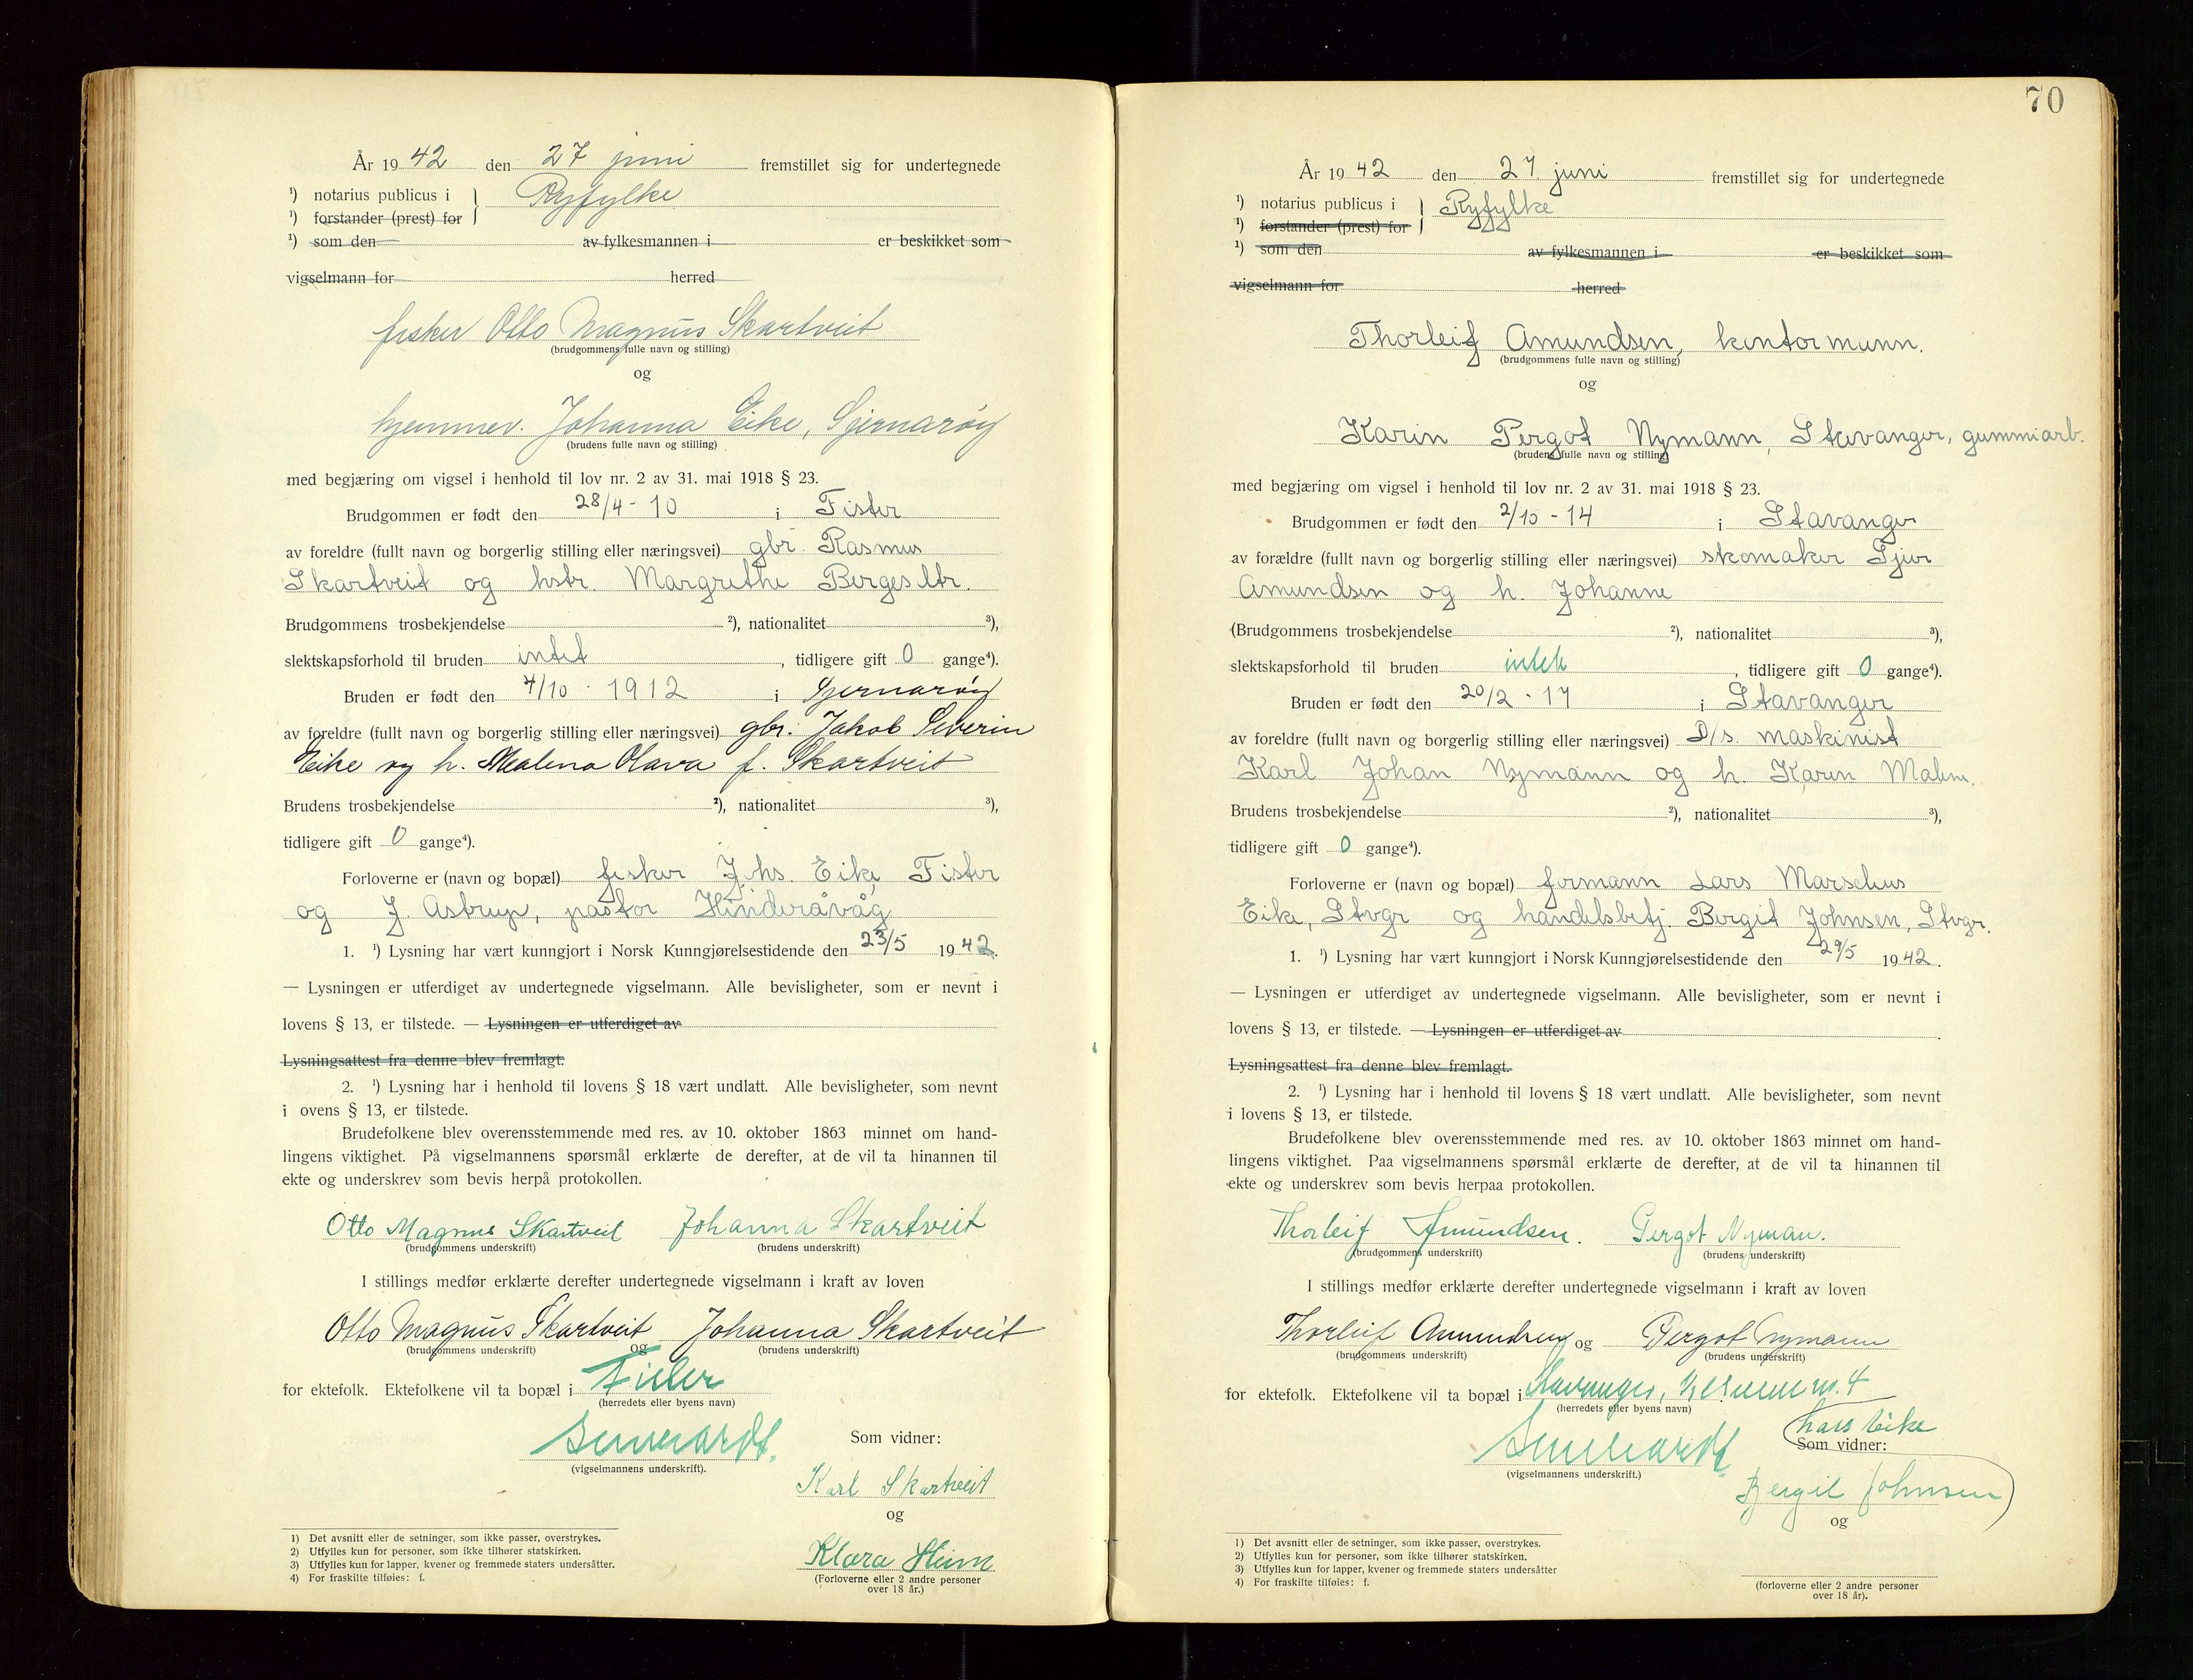 År 1942 den 27 juni fremstillet sig for undertegnede
¹) notarius publicus i } Ryfylke
¹) forstander (prest) for
¹) som den av fylkesmannen i er beskikket som
vigselmann for herred
fisker Otto Magnus Skartveit
(brudgommens fulle navn og stilling)
og
hjemmev. Johanna Eike, Sjernarøy
(brudens fulle navn og stilling)
med begjæring om vigsel i henhold til lov nr. 2 av 31. mai 1918 § 23.
Brudgommen er født den 28/4 - 10 i Fister
av foreldre (fullt navn og borgerlig stilling eller næringsvei) gbr. Rasmus
Skartveit og hstr. Margrethe Bergesdtr.
Brudgommens trosbekjendelse ²), nationalitet ³),
slektskapsforhold til bruden intet, tidligere gift 0 gange⁴).
Bruden er født den 4/10 - 1912 i Sjernarøy
av foreldre (fullt navn og borgerlig stilling eller næringsvei) gbr. Jakob Severin
Eike og h. Malena Olava f. Skartveit
Brudens trosbekjendelse ²), nationalitet ³),
tidligere gift 0 gange⁴).
Forloverne er (navn og bopæl) fisker Johs. Eike, Fister
og J. Astrup, pastor Hinderåvåg
1. ¹) Lysning har vært kunngjort i Norsk Kunngjørelsestidende den 23/5 1942.
— Lysningen er utferdiget av undertegnede vigselmann. Alle bevisligheter, som er nevnt i
lovens § 13, er tilstede. — Lysningen er utferdiget av
Lysningsattest fra denne blev fremlagt.
2. ¹) Lysning har i henhold til lovens § 18 vært undlatt. Alle bevisligheter, som nevnt
i ovens § 13, er tilstede.
Brudefolkene blev overensstemmende med res. av 10. oktober 1863 minnet om hand-
lingens viktighet. På vigselmannens spørsmål erklærte de derefter, at de vil ta hinannen til
ekte og underskrev som bevis herpå protokollen.
Otto Magnus Skartveit Johanna Skartveit
(brudgommens underskrift) (brudens underskrift)
I stillings medfør erklærte derefter undertegnede vigselmann i kraft av loven
Otto Magnus Skartveit Johanna Skartveit
(brudgommens underskrift) og (brudens underskrift)
for ektefolk. Ektefolkene vil ta bopæl i Fister
(herredets eller byens navn)
Som vidner:
(vigselmannens underskrift).
Karl Skartveit
og
Klara Heim
(Forloverne eller 2 andre personer
over 18 år.)
1) Det avsnitt eller de setninger, som ikke passer, overstrykes.
2) Utfylles kun for personer, som ikke tilhører statskirken.
3) Utfylles kun for lapper, kvener og fremmede staters undersåtter.
4) For fraskilte tilføies: f.
70
År 1942 den 27. juni fremstillet sig for undertegnede
¹) notarius publicus i } Ryfylke
¹) forstander (prest) for
¹) som den av fylkesmannen i er beskikket som
vigselmann for herred
Thorleif Amundsen, kontormann.
(brudgommens fulle navn og stilling)
og
Karin Pergot Nymann, Stavanger, gummiarb.
(brudens fulle navn og stilling)
med begjæring om vigsel i henhold til lov nr. 2 av 31. mai 1918 § 23.
Brudgommen er født den 2/10 - 14 i Stavanger
av forældre (fullt navn og borgerlig stilling eller næringsvei) skomaker
Amundsen og h. Johanne
(Brudgommens trosbekjendelse ²), nationalitet ³),
slektskapsforhold til bruden intet, tidligere gift 0 gange⁴).
Bruden er født den 20/2 - 17 i Stavanger
av foreldre (fullt navn og borgerlig stilling eller næringsvei) D/s. maskinist
Karl Johan Nymann og h. Karen Malene.
Brudens trosbekjendelse ²), nationalitet ³),
tidligere gift 0 gange⁴).
Forloverne er (navn og bopæl) formann Lars Marselius
Eike, Stvgr og handelsbetj. Bergit Johnsen, Stvgr.
1. ¹) Lysning har vært kunngjort i Norsk Kunngjørelsestidende den 29/5 1942.
— Lysningen er utferdiget av undertegnede vigselmann. Alle bevisligheter, som er nevnt i
lovens § 13, er tilstede. — Lysningen er utferdiget av .
Lysningsattest fra denne blev fremlagt.
2. ¹) Lysning har i henhold til lovens § 18 vært undlatt. Alle bevisligheter, som nevnt
i lovens § 13, er tilstede.
Brudefolkene blev overensstemmende med res. av 10. oktober 1863 minnet om hand-
lingens viktighet. Paa vigselmannens spørsmål erklærte de derefter, at de vil ta hinannen til
ekte og underskrev som bevis herpaa protokollen.
Thorleif Amundsen. Pergot Nyman.
(brudgommens underskrift) (brudens underskrift)
I stillings medfør erklærte derefter undertegnede vigselmann i kraft av loven
Thorleif Amundsen og Pergot Nymann
(brudgommens underskrift) (brudens underskrift)
for ektefolk. Ektefolkene vil ta bopæl i Stavanger,
(herredets eller byens navn)
Lars Eike
Som vidner:
(vigselmannens underskrift.)
Bergit Johnsen
og
(forloverne eller 2 andre personer
over 18 år).
1) Det avsnitt eller de setninger, som ikke passer, overstrykes.
2) Utfylles kun for personer, som ikke tilhører statskirken.
3) Utfylles kun for lapper, kvener og fremmede staters undersåtter
4) For fraskilte tilføies: f.